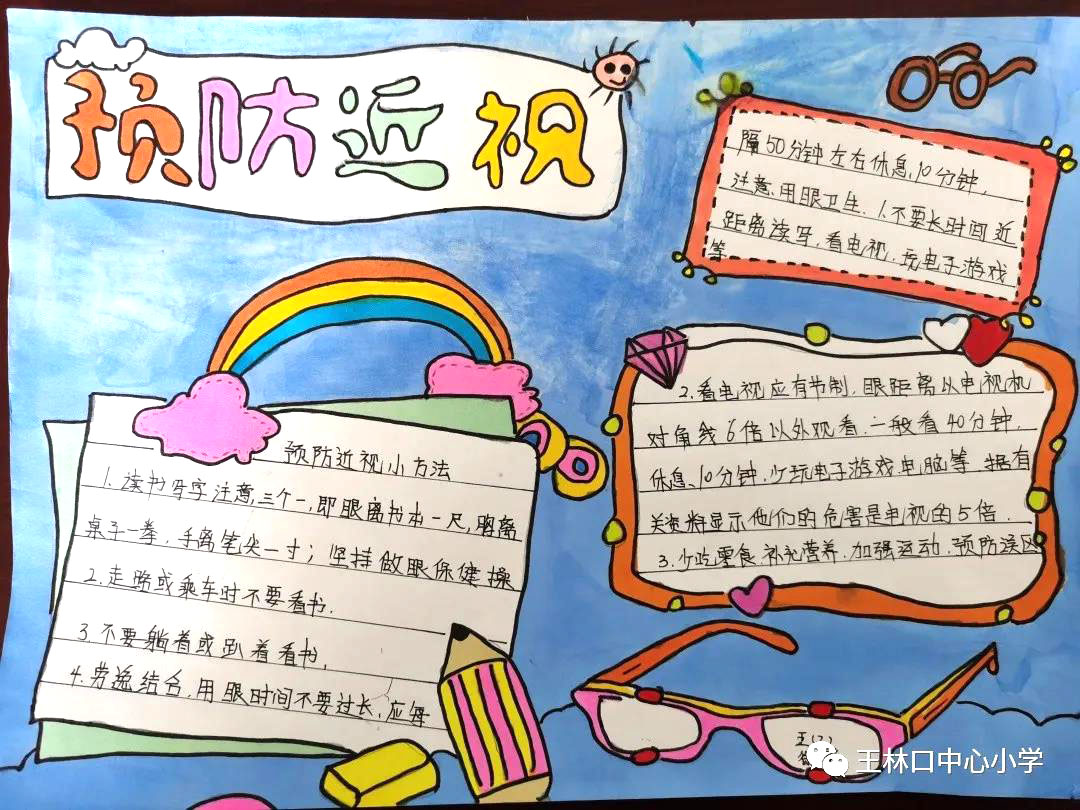 预防近视
预防近视小方法
1. 读书写字注意三个一，即眼离书本一尺，胸离
桌子一拳，手离笔尖一寸；坚持做眼保健操
2. 走路或乘车时不要看书.
3. 不要躺着或趴着看书，
4. 劳逸结合，用眼时间不要过长，应每
隔50分钟左右休息10分钟，
注意用眼卫生. 1.不要长时间近
距离读写，看电视，玩电子游戏
等
2.看电视应有节制，眼距离从电视机
对角线6倍以外观看.一般看40分钟，
休息10分钟，少玩电子游戏电脑等 据有
关资料显示他们的危害是电视的5倍.
3.少吃零食.补充营养.加强运动.预防误区
王(2)
王林口中心小学